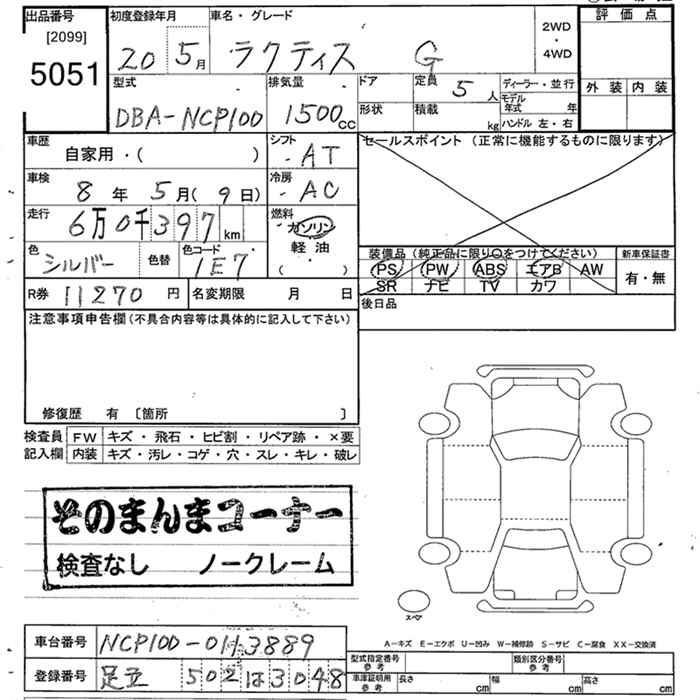 出品番号
[2099]
5051
初度登録年月
20 5月
車名・グレード
ラクティス G
2WD
・
4WD
評価点
外装 内装
型式
DBA-NCP100
排気量
1500cc
ドア
形状
定員 5人
積載 kg
ディーラー・並行
モデル年式 年
ハンドル 左・右
車歴
自家用・( )
シフト
AT
セールスポイント (正常に機能するものに限ります)
車検
8年 5月( 9日)
冷房
AC
走行
6万0千397km
燃料
ガソリン
軽油
( )
色
シルバー
色替
色コード
1E7
装備品 (純正品に限り○をつけてください)
PS PW ABS エアB AW
SR ナビ TV カワ
新車保証書
有・無
R券 11270 円
名変期限 月 日
後日品
注意事項申告欄(不具合内容等は具体的に記入して下さい)
修復歴 有 〔箇所 〕
検査員記入欄
FW キズ・飛石・ヒビ割・リペア跡・×要
内装 キズ・汚レ・コゲ・穴・スレ・キレ・破レ
そのまんまコーナー
検査なし ノークレーム
スペア
A-キズ E-エクボ U-凹み W-補修跡 S-サビ C-腐食 XX-交換済
車台番号 NCP100-0113889
登録番号 足立 502 は 3048
型式指定番号 参考
類別区分番号 参考
車庫証明用 参考
長さ cm
幅 cm
高さ cm